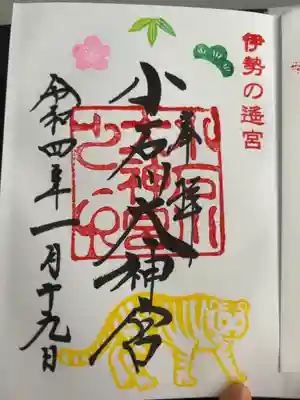 伊勢の遙宮
奉拝
小石川大神宮
令和四年一月十九日